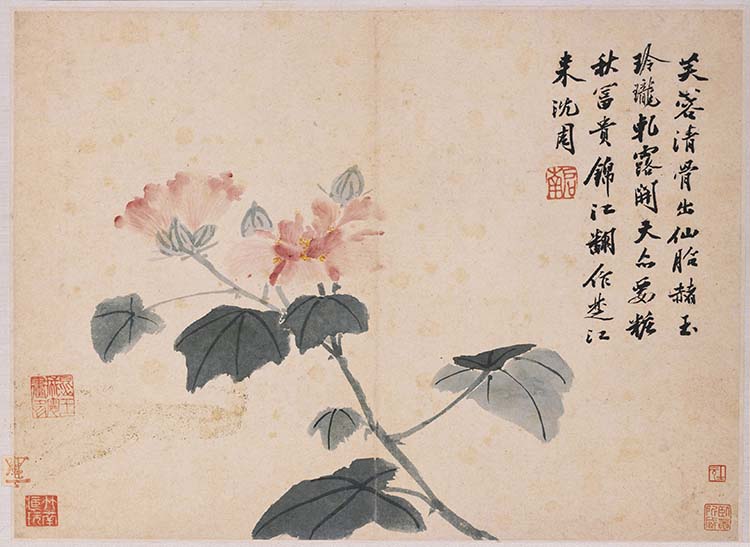 芙蓉清骨出仙胎赭玉
玲瓏軋露開天亦要粧
秋富貴錦江翻作楚江
来沈周
啓南